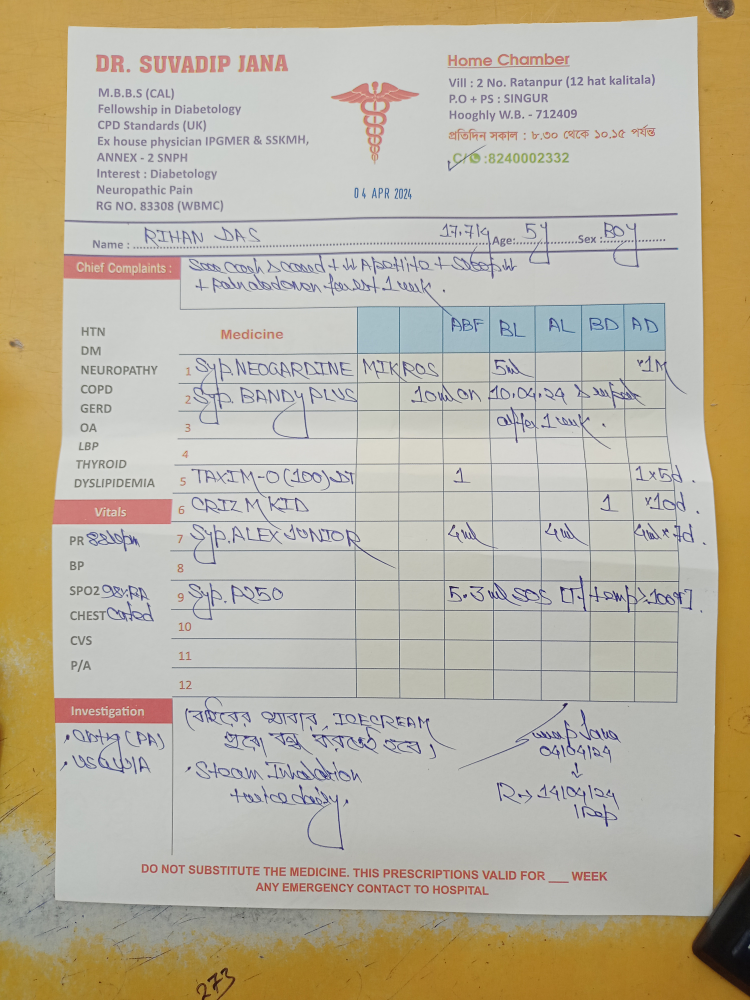 DR. SUVADIP JANA
M.B.B.S (CAL)
Fellowship in Diabetology
CPD Standards (UK)
Ex house physician IPGMER & SSKMH,
ANNEX - 2 SNPH
Interest : Diabetology
Neuropathic Pain
RG NO. 83308 (WBMC)
04 APR 2024
Home Chamber
Vill : 2 No. Ratanpur (12 hat kalitala)
P.O + PS : SINGUR
Hooghly W.B. - 712409
প্রতিদিন সকাল : ৮.৩০ থেকে ১০.১৫ পর্যন্ত
C/ :8240002332
Name : RIHAN DAS 17.7kg Age: 5y Sex : BOY
Chief Complaints :
+ ↓↓ Apetite +
+ 1 week .
Medicine ABF BL AL BD AD
HTN
DM
NEUROPATHY
COPD
GERD
OA
LBP
THYROID
DYSLIPIDEMIA
1 Syp. NEOGARDINE MIKROS 5ml x1M
2 Syp. BANDY PLUS 10ml on 10.04.24 & repeat
3 after 1 week .
4
5 TAXIM-O (100) DT 1 1x5d .
6 CRIZ M KID 1 x10d .
7 Syp. ALEX JUNIOR 4ml 4ml 4ml x 7d .
8
9 Syp. P250 5.3 ml SOS [If temp ≥100°F] .
10
11
12
Vitals
PR 88bpm
BP
SPO2 98% RA
CHEST Coated
CVS
P/A
Investigation
USG W/A
(বাইরের খাবার, ICECREAM
পুরো বন্ধ করতেই হবে)
• Steam Inhalation
twice daily.
Jana
04/04/24
↓
R → 14/04/24
DO NOT SUBSTITUTE THE MEDICINE. THIS PRESCRIPTIONS VALID FOR ___ WEEK
ANY EMERGENCY CONTACT TO HOSPITAL
273